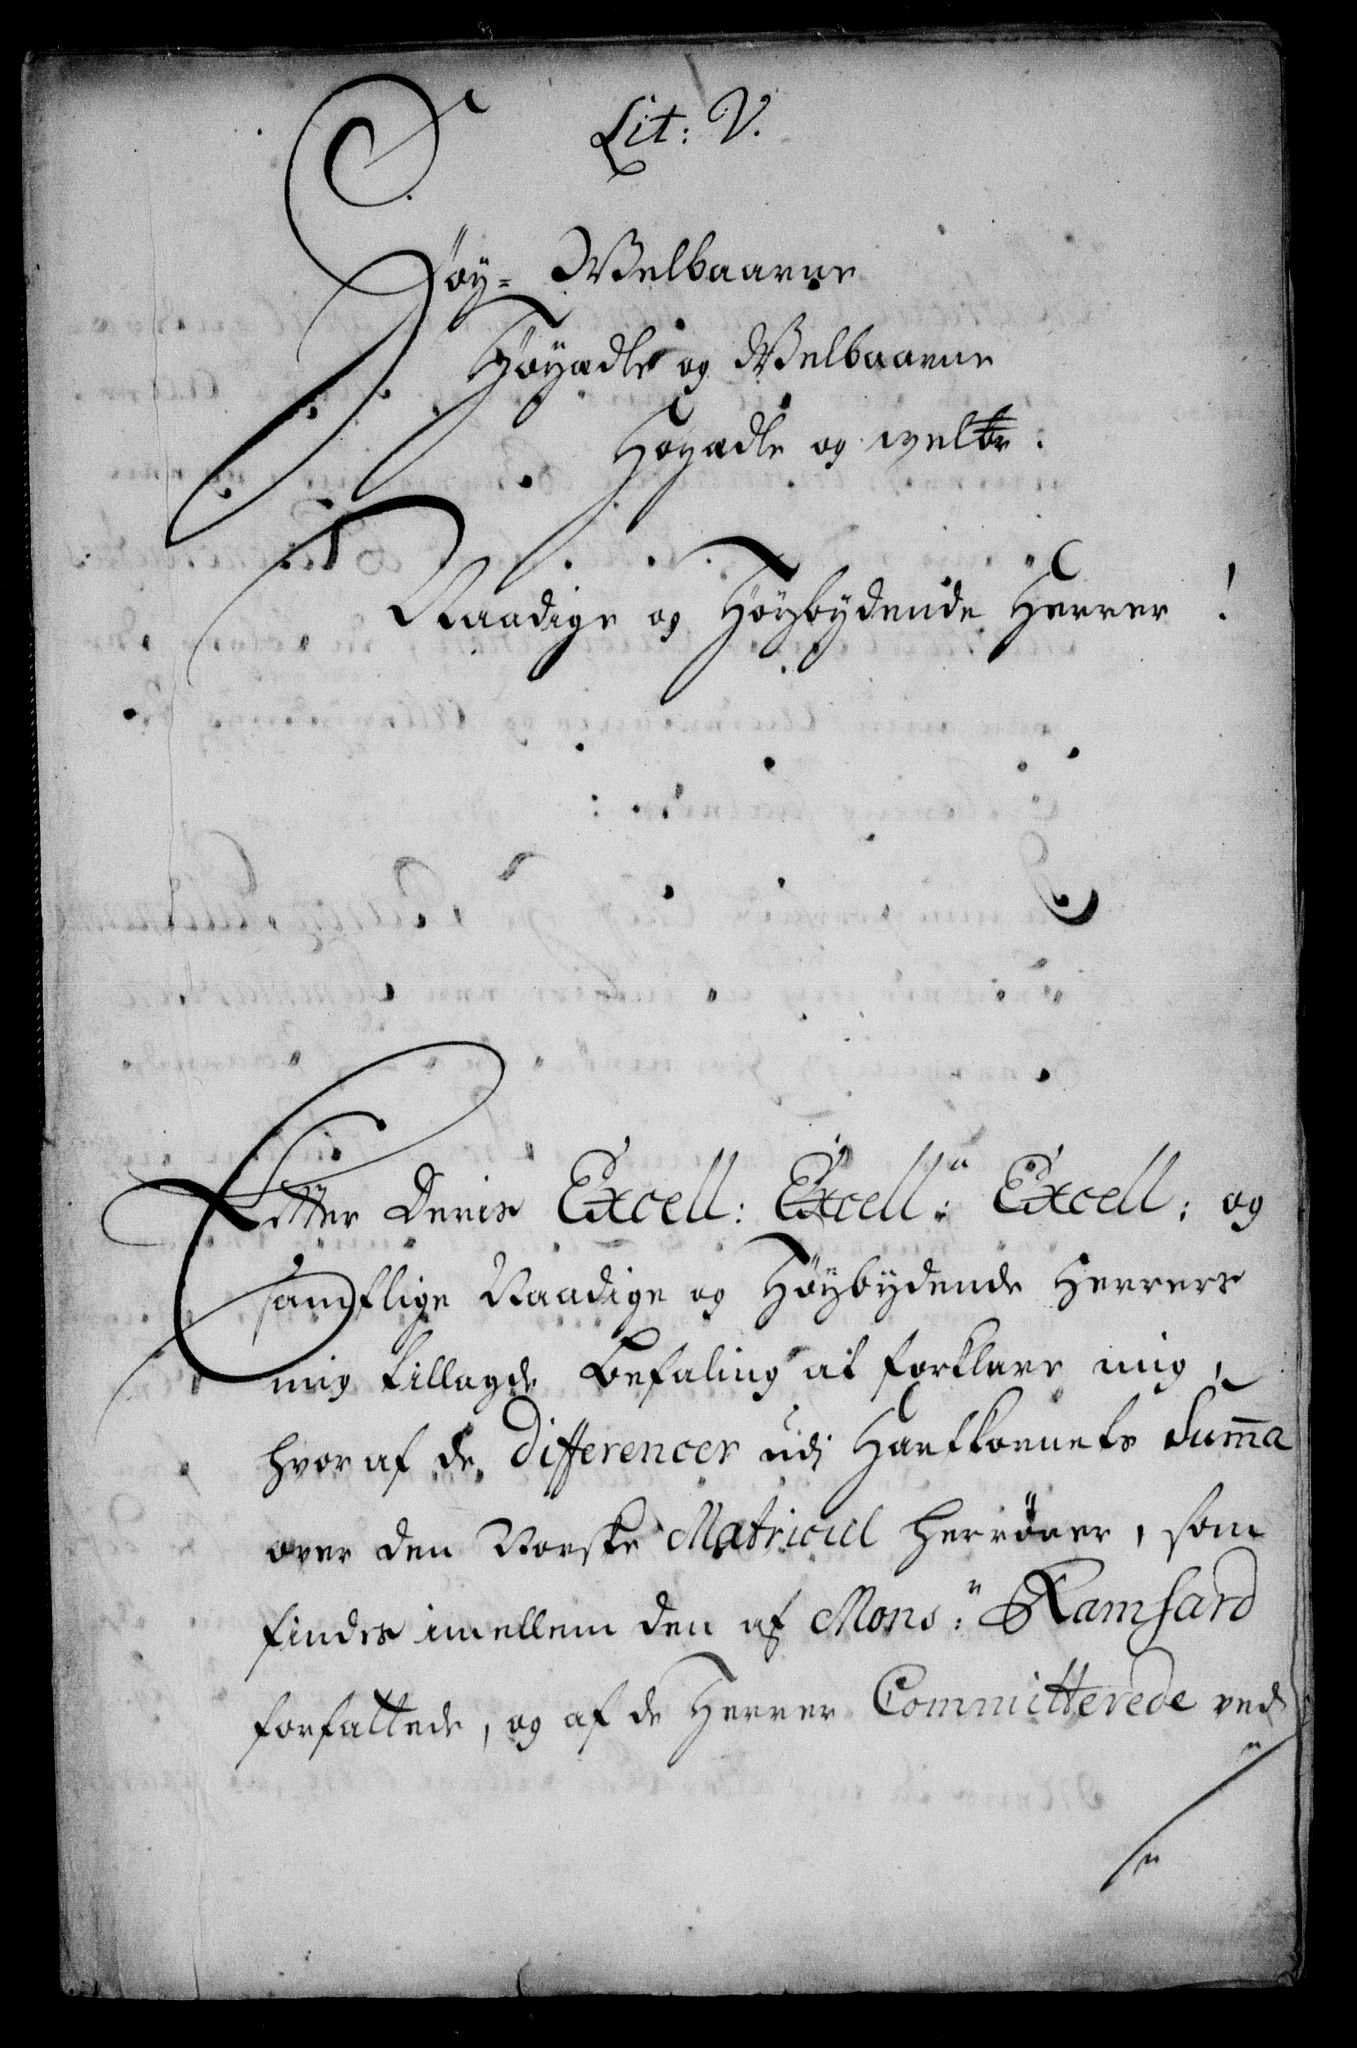 Lit: V.
Høy= Welbaarne
Høyadle og Welbaarne
Høyadle og welbr:
Naadige og Høybydende Herrer!
Efter Deris Excell: Excell: Excell: og
samptlige Naadige og Høybydende Herrers
mig tillagde Befaling at forklare mig,
hvoraf de Differencer udi Hartkornets Sum̄a
over den Norske Matricul herrører, som
findes imellem den af Monsr: Ramhard
forfattede, og af de Herrer Committerede ved